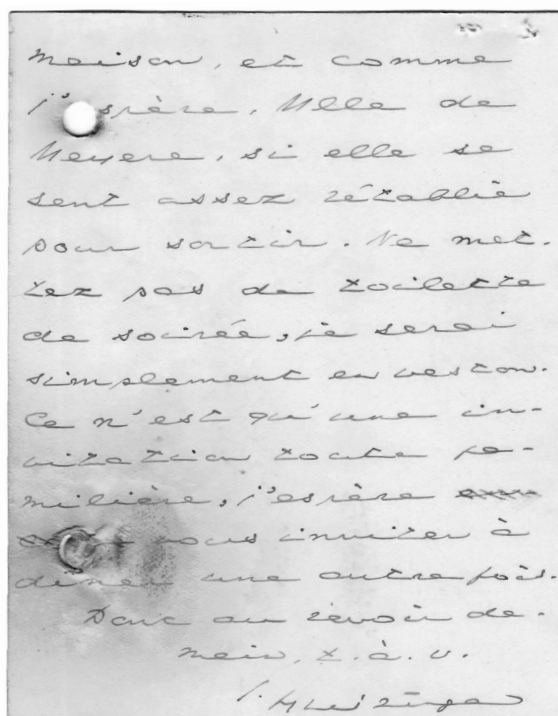 maison, et comme
j'espère, Mlle de
Meyere, si elle se
sent assez rétablie
pour sortir. Ne met-
tez pas de toilette
de soirée, je serai
simplement en veston.
Ce n'est qu'une in-
vitation toute fa-
milière, j'espère
vous inviter à
dîner une autre fois.
Donc au revoir de-
main, t. à. v.
J. Huizinga